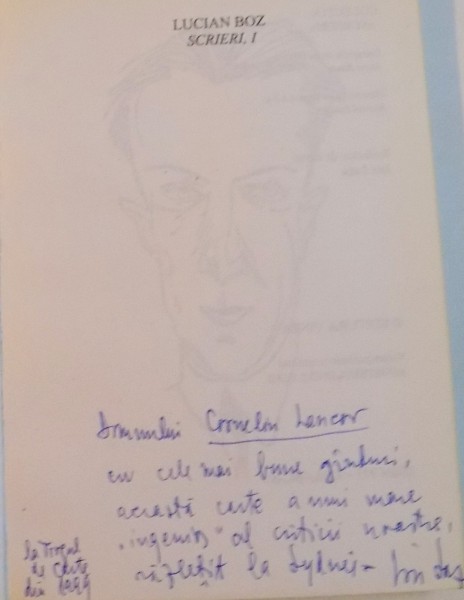 LUCIAN BOZ
SCRIERI, I
Domnului Corneliu Lancov
cu cele mai bune gânduri,
această carte a unui mare
„ingenios” al criticii noastre,
răzlețit la Sydney –
la Târgul
de Carte
din 1999